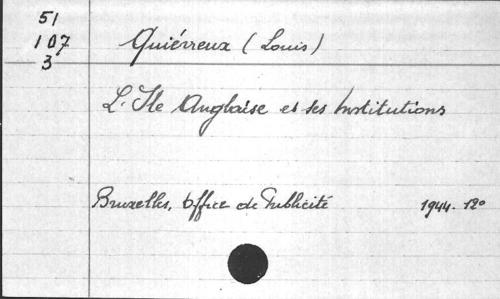 51
107
3
Quiévreux (Louis)
L'Ile Anglaise et ses Institutions
Bruxelles, Office de Publicité 1944. 12°